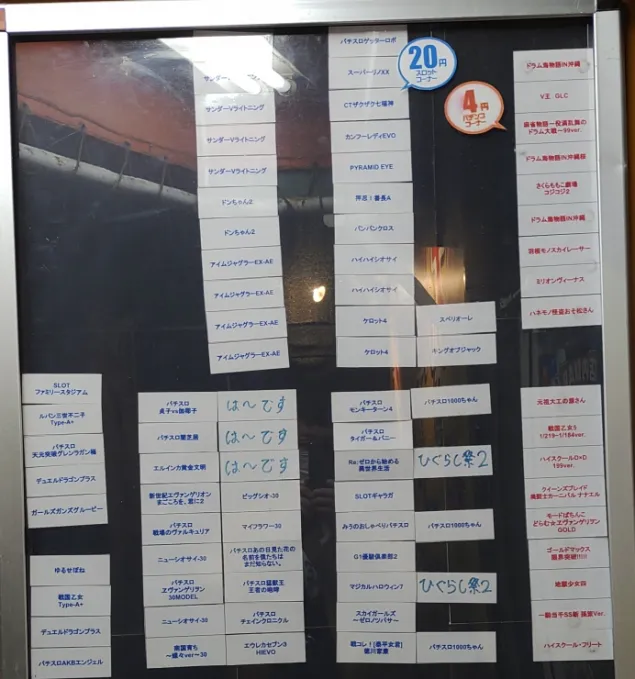 サンダーVライトニング
サンダーVライトニング
サンダーVライトニング
サンダーVライトニング
ドンちゃん2
ドンちゃん2
アイムジャグラーEX-AE
アイムジャグラーEX-AE
アイムジャグラーEX-AE
アイムジャグラーEX-AE
パチスロゲッターロボ
スーパーリノXX
CTザクザク七福神
カンフーレディEVO
PYRAMID EYE
押忍！番長A
バンバンクロス
ハイハイシオサイ
ハイハイシオサイ
ケロット4
スペリオーレ
ケロット4
キングオブジャック
20円
スロット
コーナー
4円
パチンコ
コーナー
ドラム海物語IN沖縄
V王 GLC
麻雀物語～役満乱舞の
ドラム大戦～99ver.
ドラム海物語IN沖縄桜
さくらももこ劇場
コジコジ2
ドラム海物語IN沖縄
羽根モノスカイレーサー
ミリオンヴィーナス
ハネモノ怪盗おそ松さん
SLOT
ファミリースタジアム
ルパン三世不二子
Type-A+
パチスロ
天元突破グレンラガン極
デュエルドラゴンプラス
ガールズガンズグルービー
ゆるせぽね
戦国乙女
Type-A+
デュエルドラゴンプラス
パチスロAKBエンジェル
パチスロ
貞子vs伽椰子
は～です
パチスロ闇芝居
は～です
エルインカ黄金文明
は～です
新世紀エヴァンゲリオン
まごころを、君に2
ビッグシオ-30
パチスロ
戦場のヴァルキュリア
マイフラワー30
ニューシオサイ-30
パチスロあの日見た花の
名前を僕たちは
まだ知らない。
パチスロ
ヱヴァンゲリヲン
30MODEL
パチスロ猛獣王
王者の咆哮
ニューシオサイ-30
パチスロ
チェインクロニクル
南国育ち
～蝶々ver～30
エウレカセブン3
HIEVO
パチスロ
モンキーターン4
パチスロ1000ちゃん
パチスロ
タイガー＆バニー
Re:ゼロから始める
異世界生活
ひぐらし祭2
SLOTギャラガ
みうのおしゃべりパチスロ
パチスロ1000ちゃん
G1優駿倶楽部2
マジカルハロウィン7
ひぐらし祭2
スカイガールズ
～ゼロノツバサ～
戦コレ！[泰平女君]
徳川家康
パチスロ1000ちゃん
元祖大工の源さん
戦国乙女5
1/219~1/184ver.
ハイスクールD×D
199ver.
クイーンズブレイド
美闘士カーニバル ナナエル
モードぱちんこ
どらむ☆ヱヴァンゲリヲン
GOLD
ゴールドマックス
限界突破!!!!!
地獄少女四
一騎当千SS斬 孫策Ver.
ハイスクール・フリート